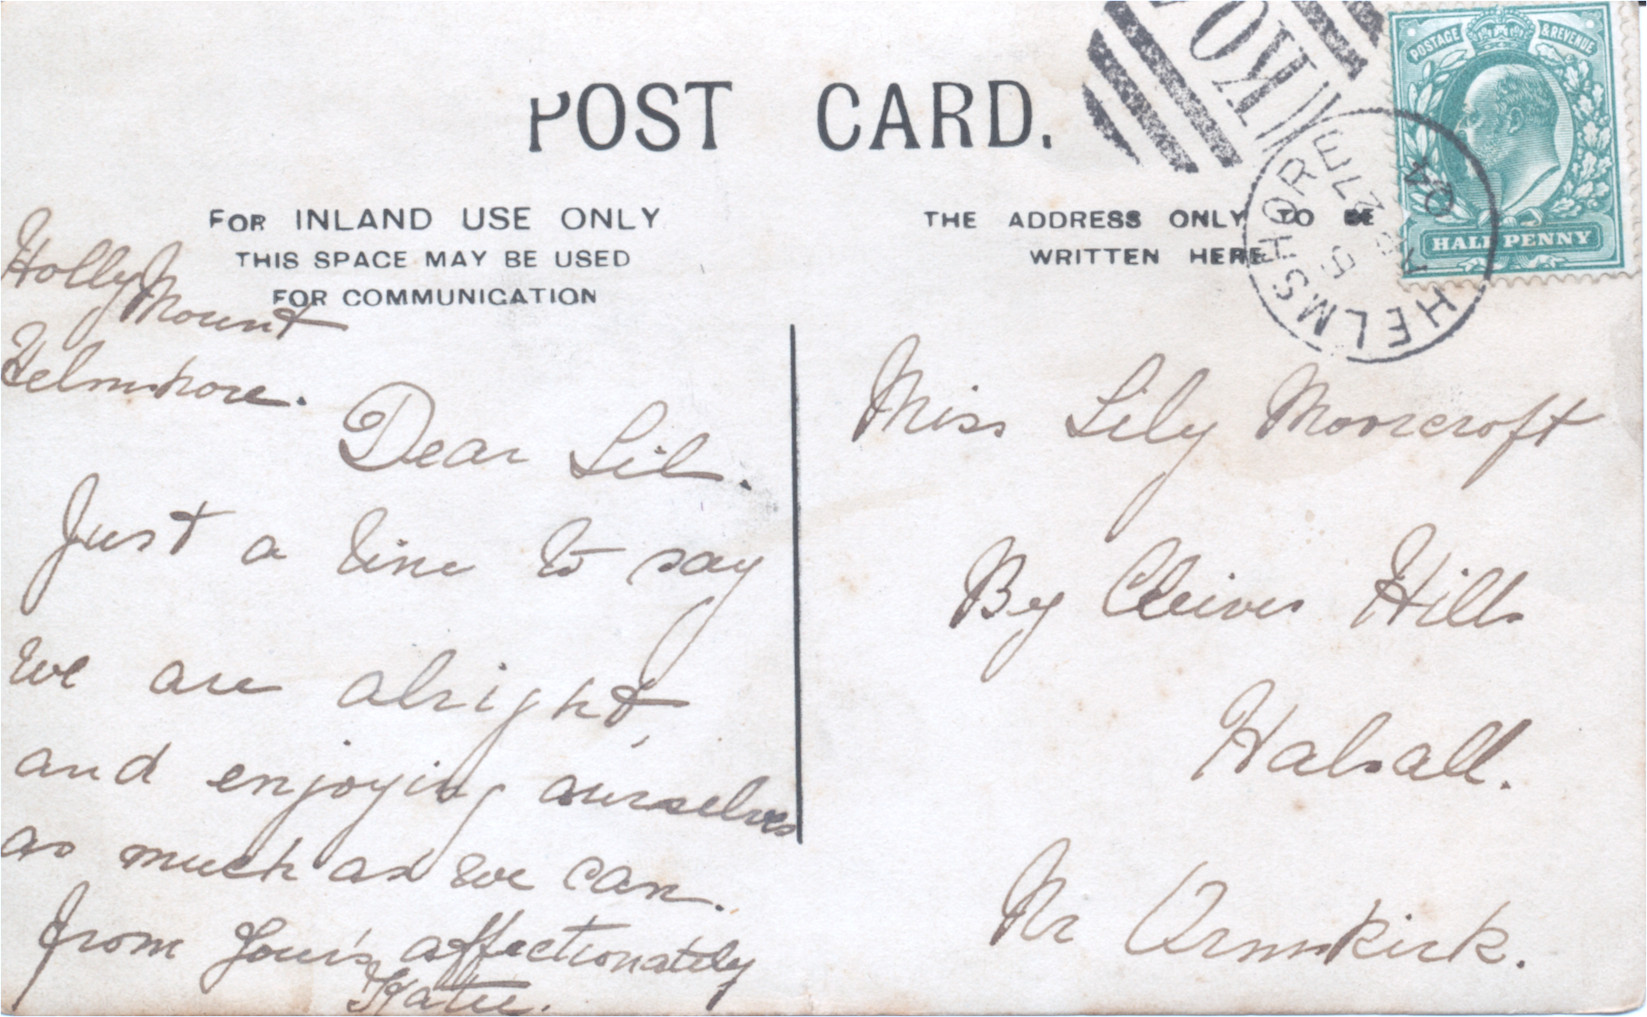 POST CARD.
FOR INLAND USE ONLY
THIS SPACE MAY BE USED
FOR COMMUNICATION
THE ADDRESS ONLY TO BE
WRITTEN HERE
POSTAGE & REVENUE
HALF PENNY
HELMSHORE
5
27
04
Holly Mount
Helmshore.
Dear Lil.
Just a line to say
we are alright,
and enjoying ourselves
as much as we can.
from Your's affectionately
Katie.
Miss Lily Moorcroft
By Cleives Hills
Halsall.
Nr Ormskirk.